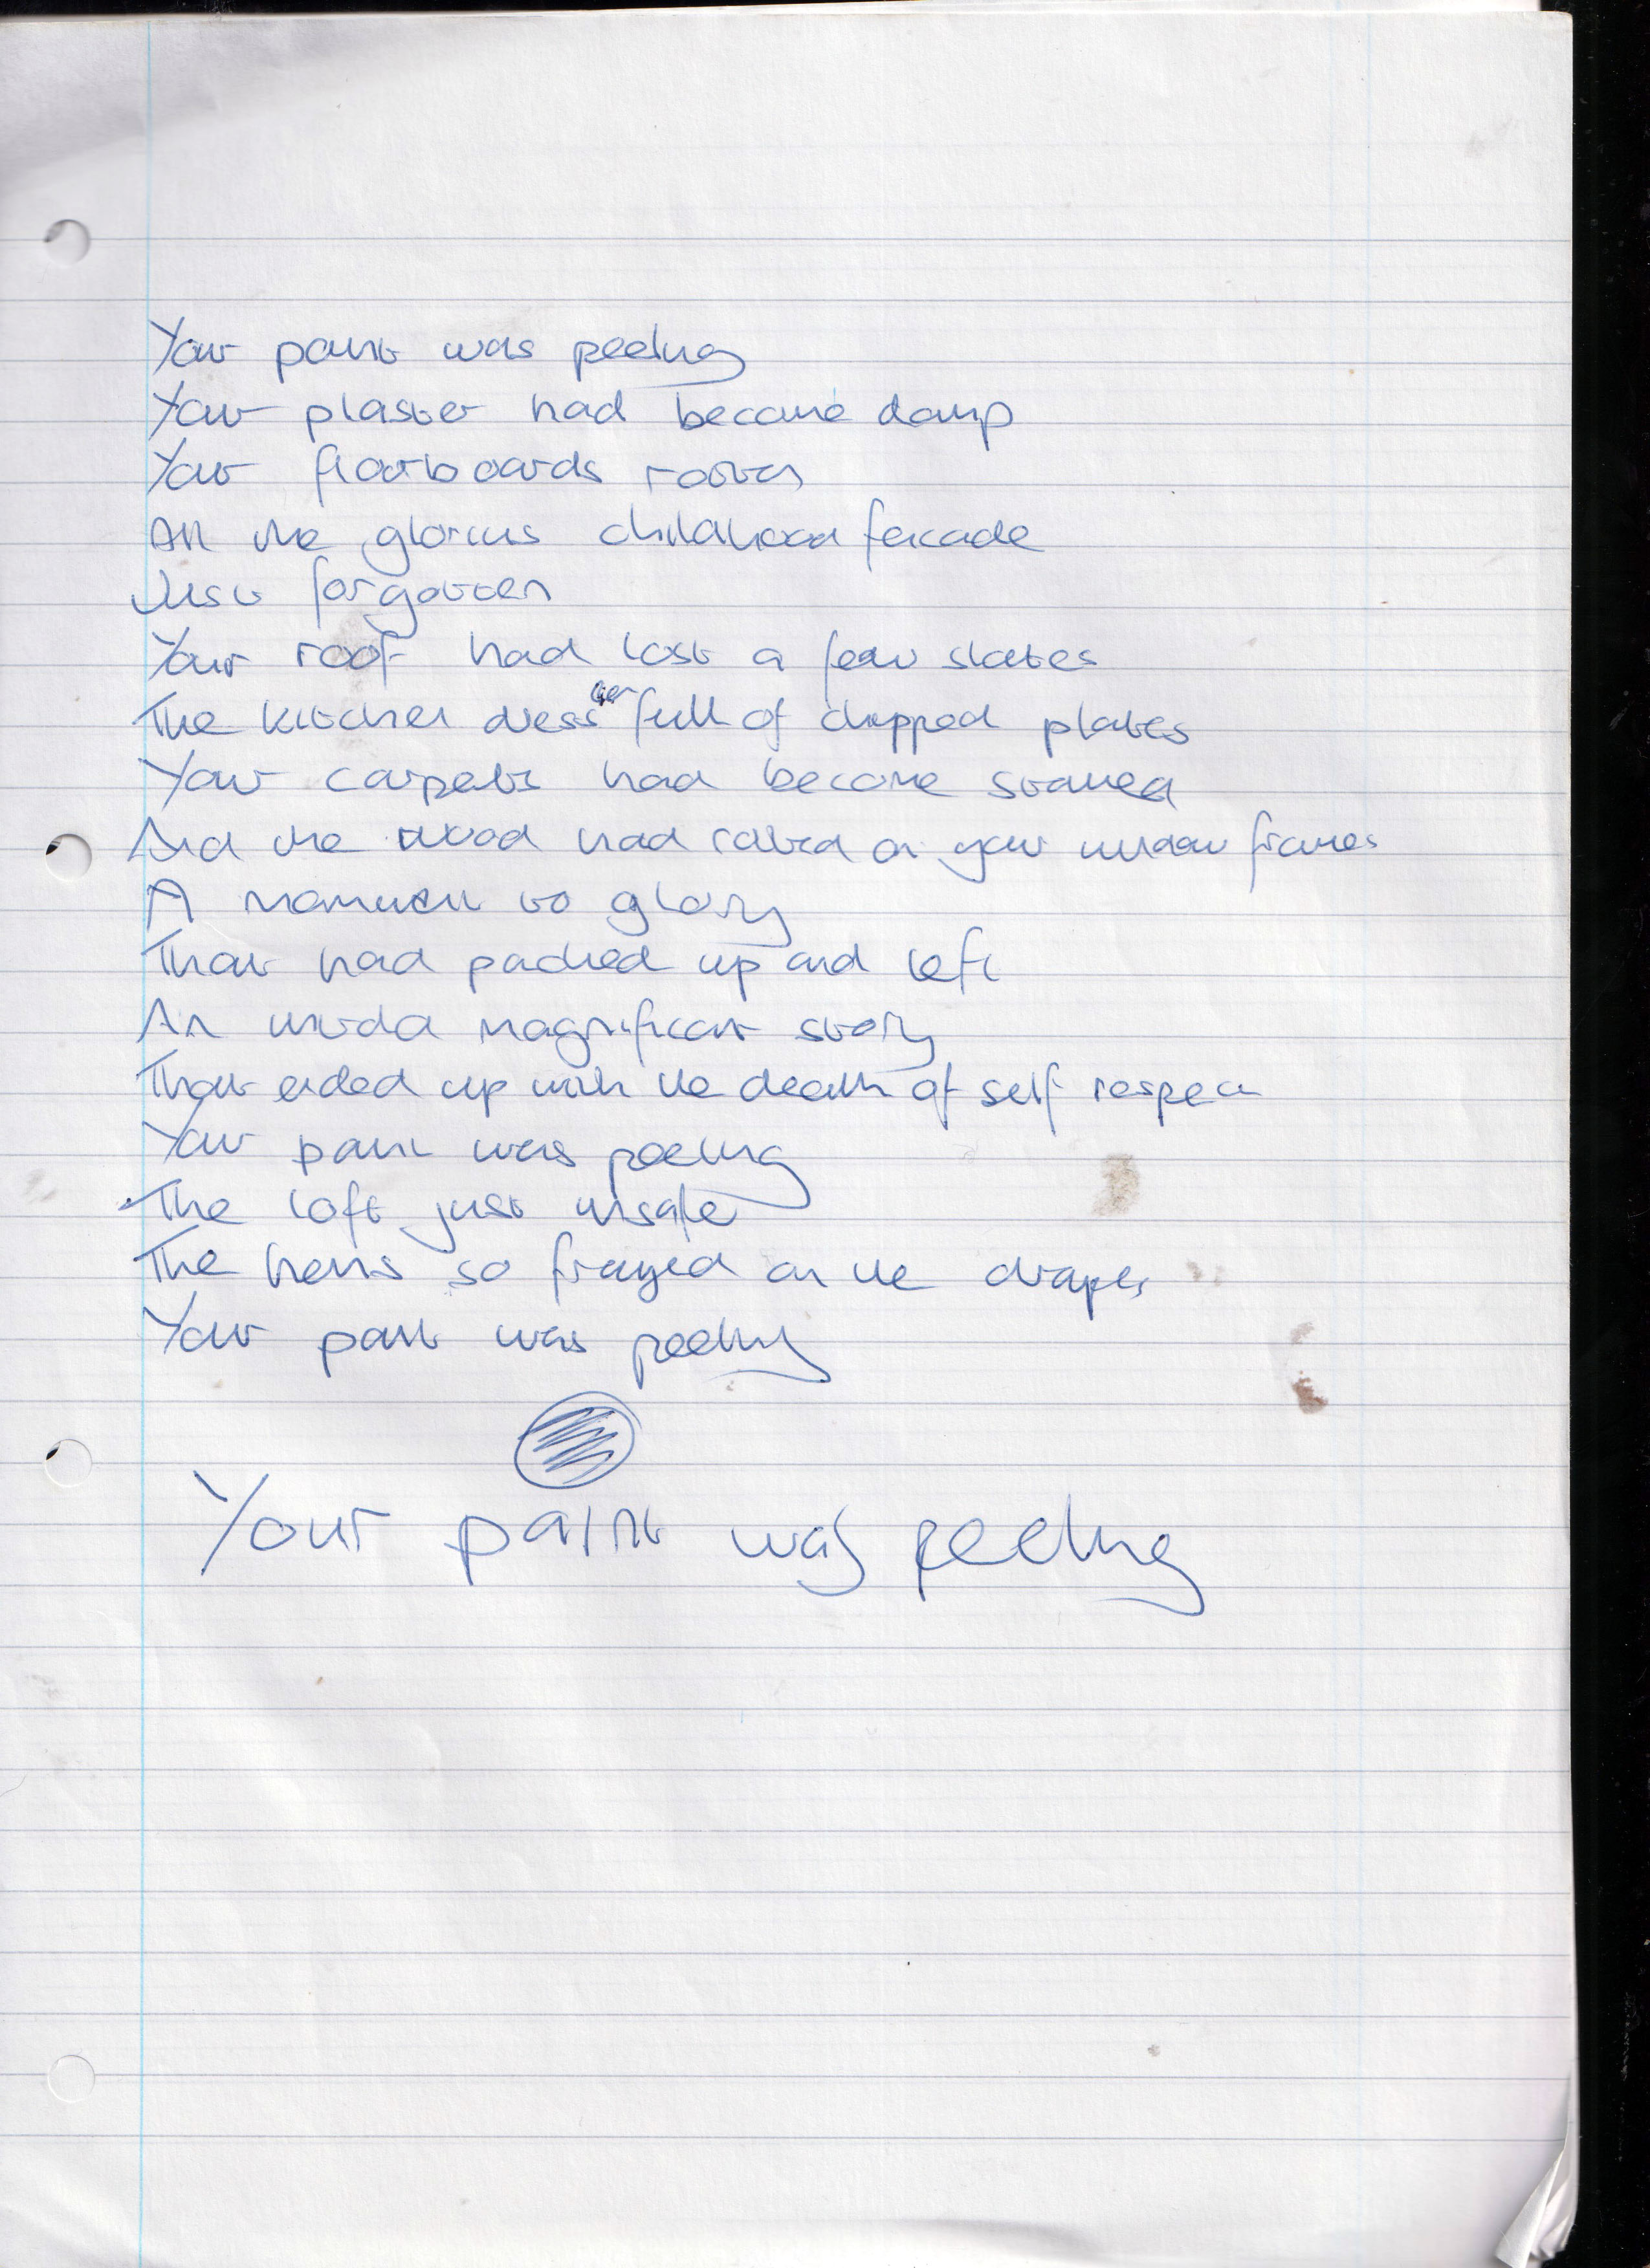 Your paint was peeling
Your plaster had become damp
Your floorboards rotten
All the glorius childhood facade
Just forgotten
Your roof had lost a few slates
The kitchen dresser full of chipped plates
Your carpets had become stained
And the wood had rotted on your window frames
A monument to glory
That had packed up and left
An untold magnificant story
That ended up with the death of self respect
Your paint was peeling
The loft just unsafe
The hems so frayed on the drapes
Your paint was peeling
Your paint was peeling